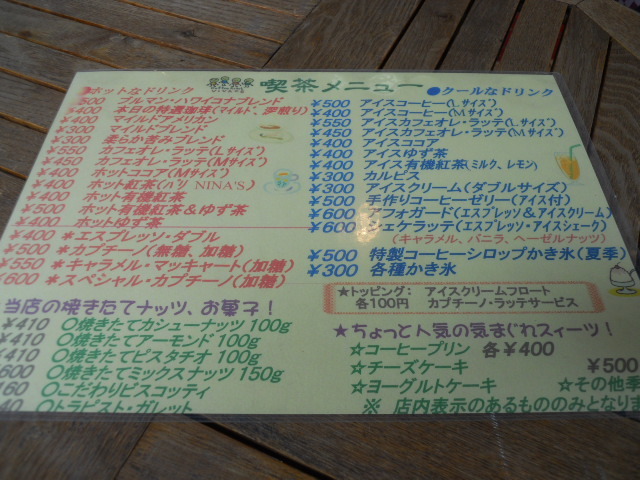 喫茶メニュー
ホットなドリンク
¥500 ブルマン・ハワイコナブレンド
¥400 本日の特選珈琲(マイルド、深煎り)
¥400 マイルドアメリカン
¥300 マイルドブレンド
¥300 柔らか苦みブレンド
¥550 カフェオレ・ラッテ(Lサイズ)
¥450 カフェオレ・ラッテ(Mサイズ)
¥400 ホットココア(Mサイズ)
¥400 ホット紅茶(パリ NINA'S)
¥400 ホット有機紅茶
¥500 ホット有機紅茶&ゆず茶
¥400 ホットゆず茶
¥400 *エスプレッソ・ダブル
¥500 *カプチーノ(無糖、加糖)
¥550 *キャラメル・マッキャート(加糖)
¥600 *スペシャル・カプチーノ(加糖)
当店の焼きたてナッツ、お菓子!
¥410 〇焼きたてカシューナッツ 100g
¥410 〇焼きたてアーモンド 100g
¥410 〇焼きたてピスタチオ 100g
600 〇焼きたてミックスナッツ 150g
160 〇こだわりビスコッティ
40 〇トラピスト・ガレット
●クールなドリンク
¥500 アイスコーヒー(Lサイズ)
¥400 アイスコーヒー(Mサイズ)
¥550 アイスカフェオレ・ラッテ(Lサイズ)
¥450 アイスカフェオレ・ラッテ(Mサイズ)
¥400 アイスココア
¥400 アイスゆず茶
¥400 アイス有機紅茶(ミルク、レモン)
¥300 カルピス
¥300 アイスクリーム(ダブルサイズ)
¥500 手作りコーヒーゼリー(アイス付)
¥600 アフォガード(エスプレッソ&アイスクリーム)
¥600 シェケラッテ(エスプレッソ・アイスシェーク)
(キャラメル、バニラ、ヘーゼルナッツ)
¥500 特製コーヒーシロップかき氷(夏季)
¥300 各種かき氷
☆トッピング: アイスクリームフロート
各100円 カプチーノ・ラッテサービス
★ちょっと人気の気まぐれスィーツ!
☆コーヒープリン 各¥400
☆チーズケーキ ¥500
☆ヨーグルトケーキ ☆その他季
※ 店内表示のあるもののみとなりま